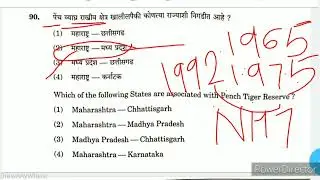 90. पेंच व्याघ्र राखीव क्षेत्र खालीलपैकी कोणत्या राज्याशी निगडीत आहे ?
(1) महाराष्ट्र — छत्तीसगढ
(2) महाराष्ट्र — मध्य प्रदेश
(3) मध्य प्रदेश — छत्तीसगढ
(4) महाराष्ट्र — कर्नाटक
1965
1992
1975
Which of the following States are associated with Pench Tiger Reserve ?
(1) Maharashtra — Chhattisgarh
(2) Maharashtra — Madhya Pradesh
(3) Madhya Pradesh — Chhattisgarh
(4) Maharashtra — Karnataka
PowerDirector